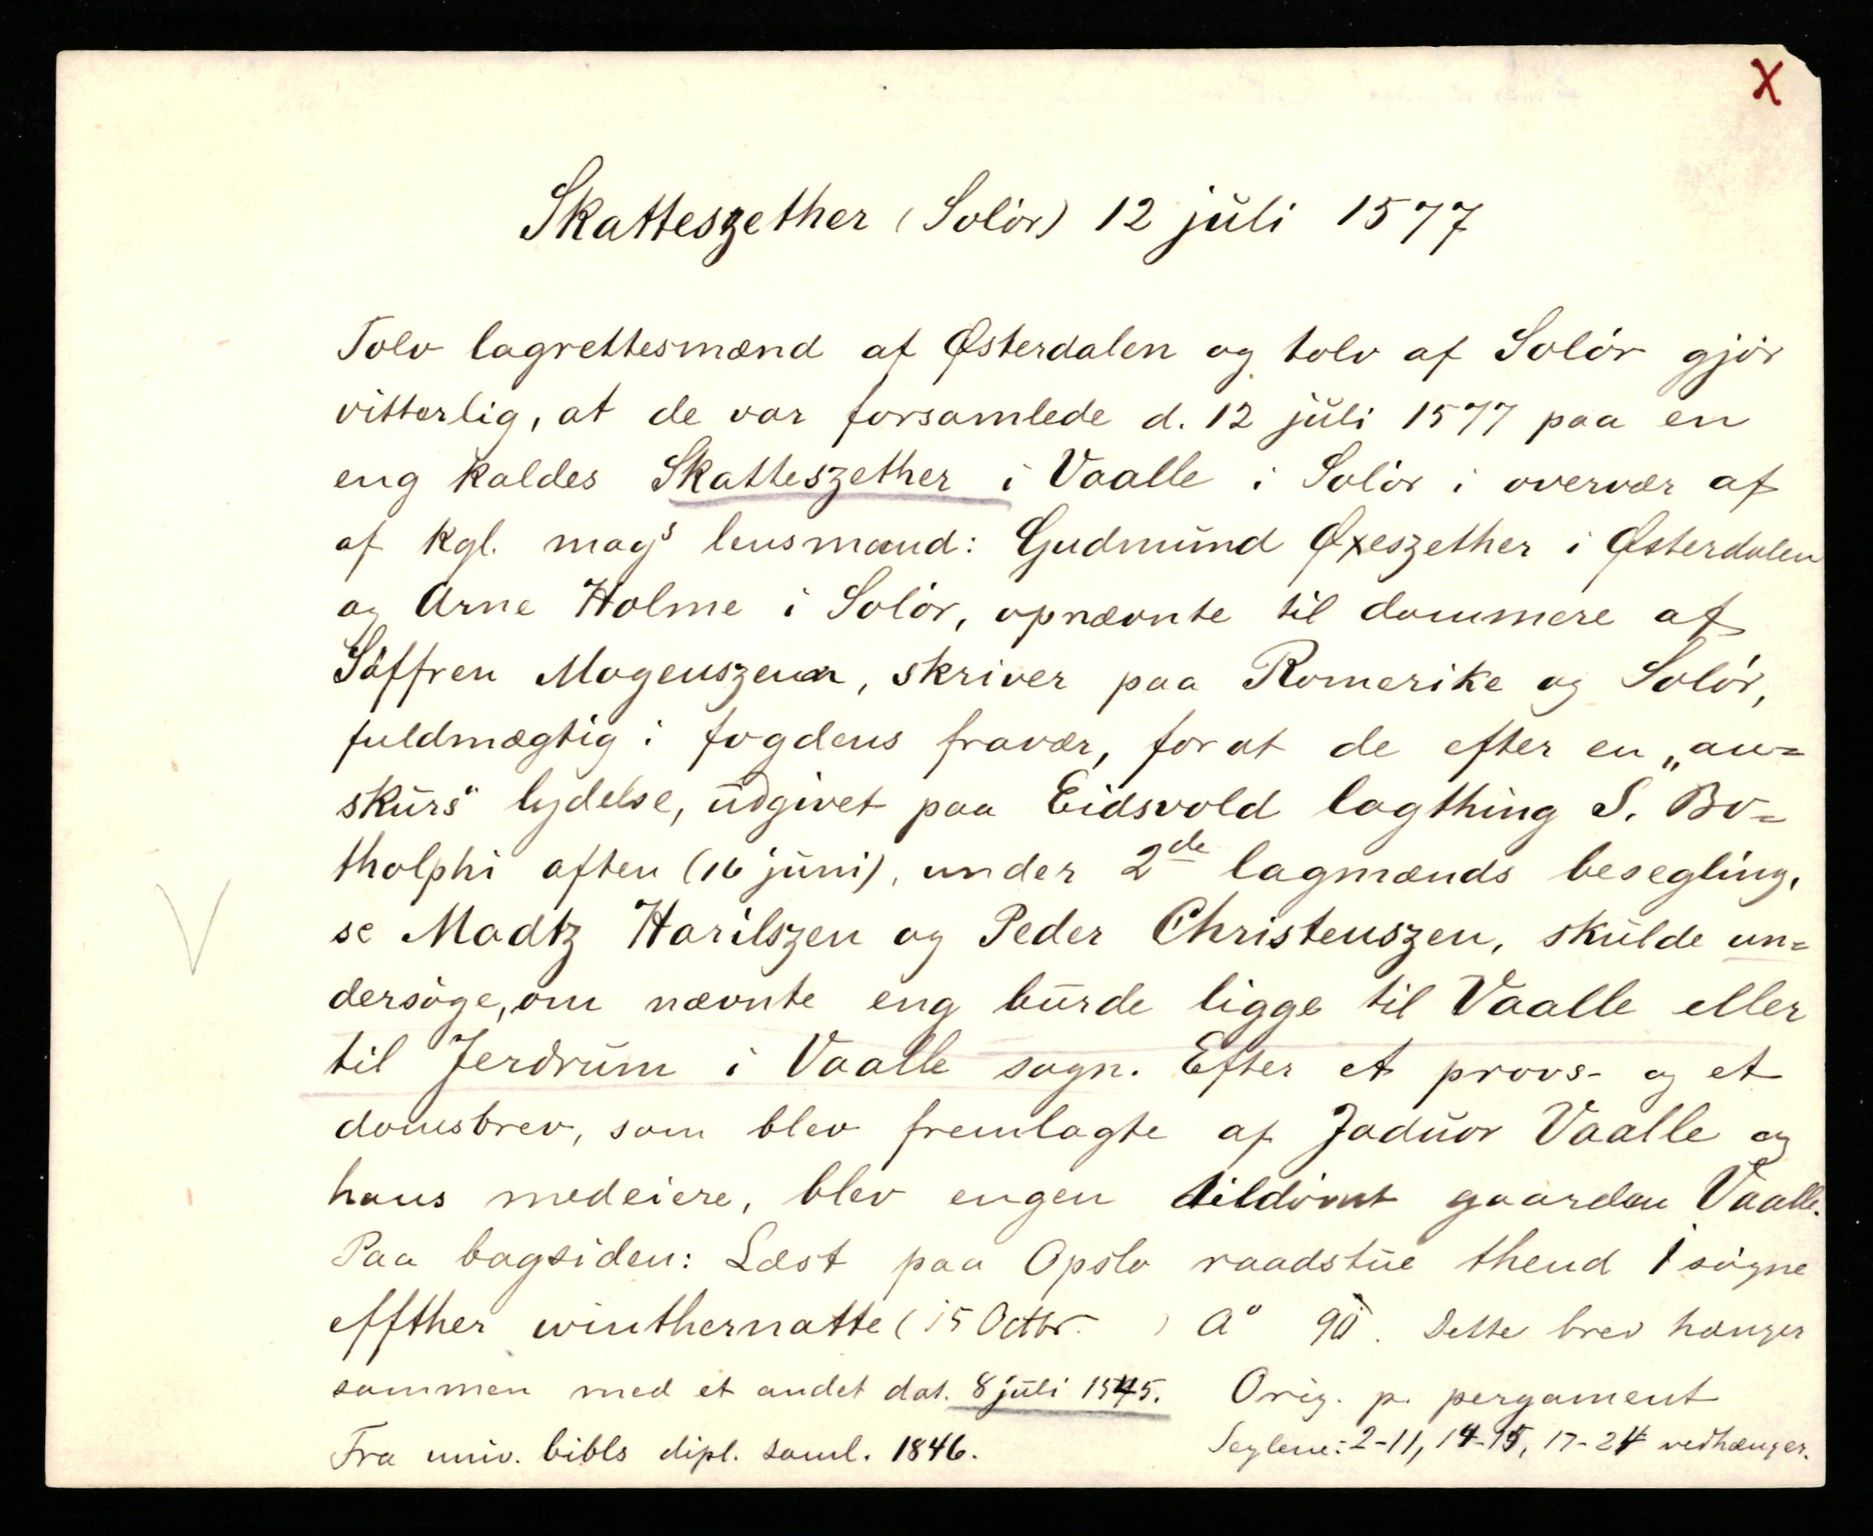 X
Skatteszether (Solør) 12 juli 1577
Tolv lagrettesmænd af Østerdalen og tolv af Solør gjør
vitterlig, at de var forsamlede d. 12 juli 1577 paa en
eng kaldes Skatteszether i Vaalle i Solør i overvær af
af kgl. mags lensmænd: Gudmund Øxeszether i Østerdalen
og Arne Holme i Solør, opnævnte til dommere af
Søffren Mogenszenn, skriver paa Romerike og Solør,
fuldmægtig i fogdens fravær, forat de efter en „an=
skurs“ lydelse, udgivet paa Eidsvold lagthing S. Bo=
tholphi aften (16 juni), under 2de lagmænds besegling,
se Madtz Harilszen og Peder Christenszen, skulde un=
dersøge, om nævnte eng burde ligge til Vaalle eller
til Jerdrum i Vaalle sogn. Efter et provs- og et
domsbrev, som blev fremlagte af Jaduor Vaalle og
hans medeiere, blev engen tildømt gaarden Vaalle.
Paa bagsiden: Læst paa Opslo raadstue thend 1 søgne
effther winthernatte (15 Octbr. ) Aº 90. Dette brev hænger
sammen med et andet dat. 8 juli 1545. Orig. p. pergament
Fra univ. bibls dipl. saml. 1846. Seglene: 2-11, 14-15, 17-24 vedhænger.